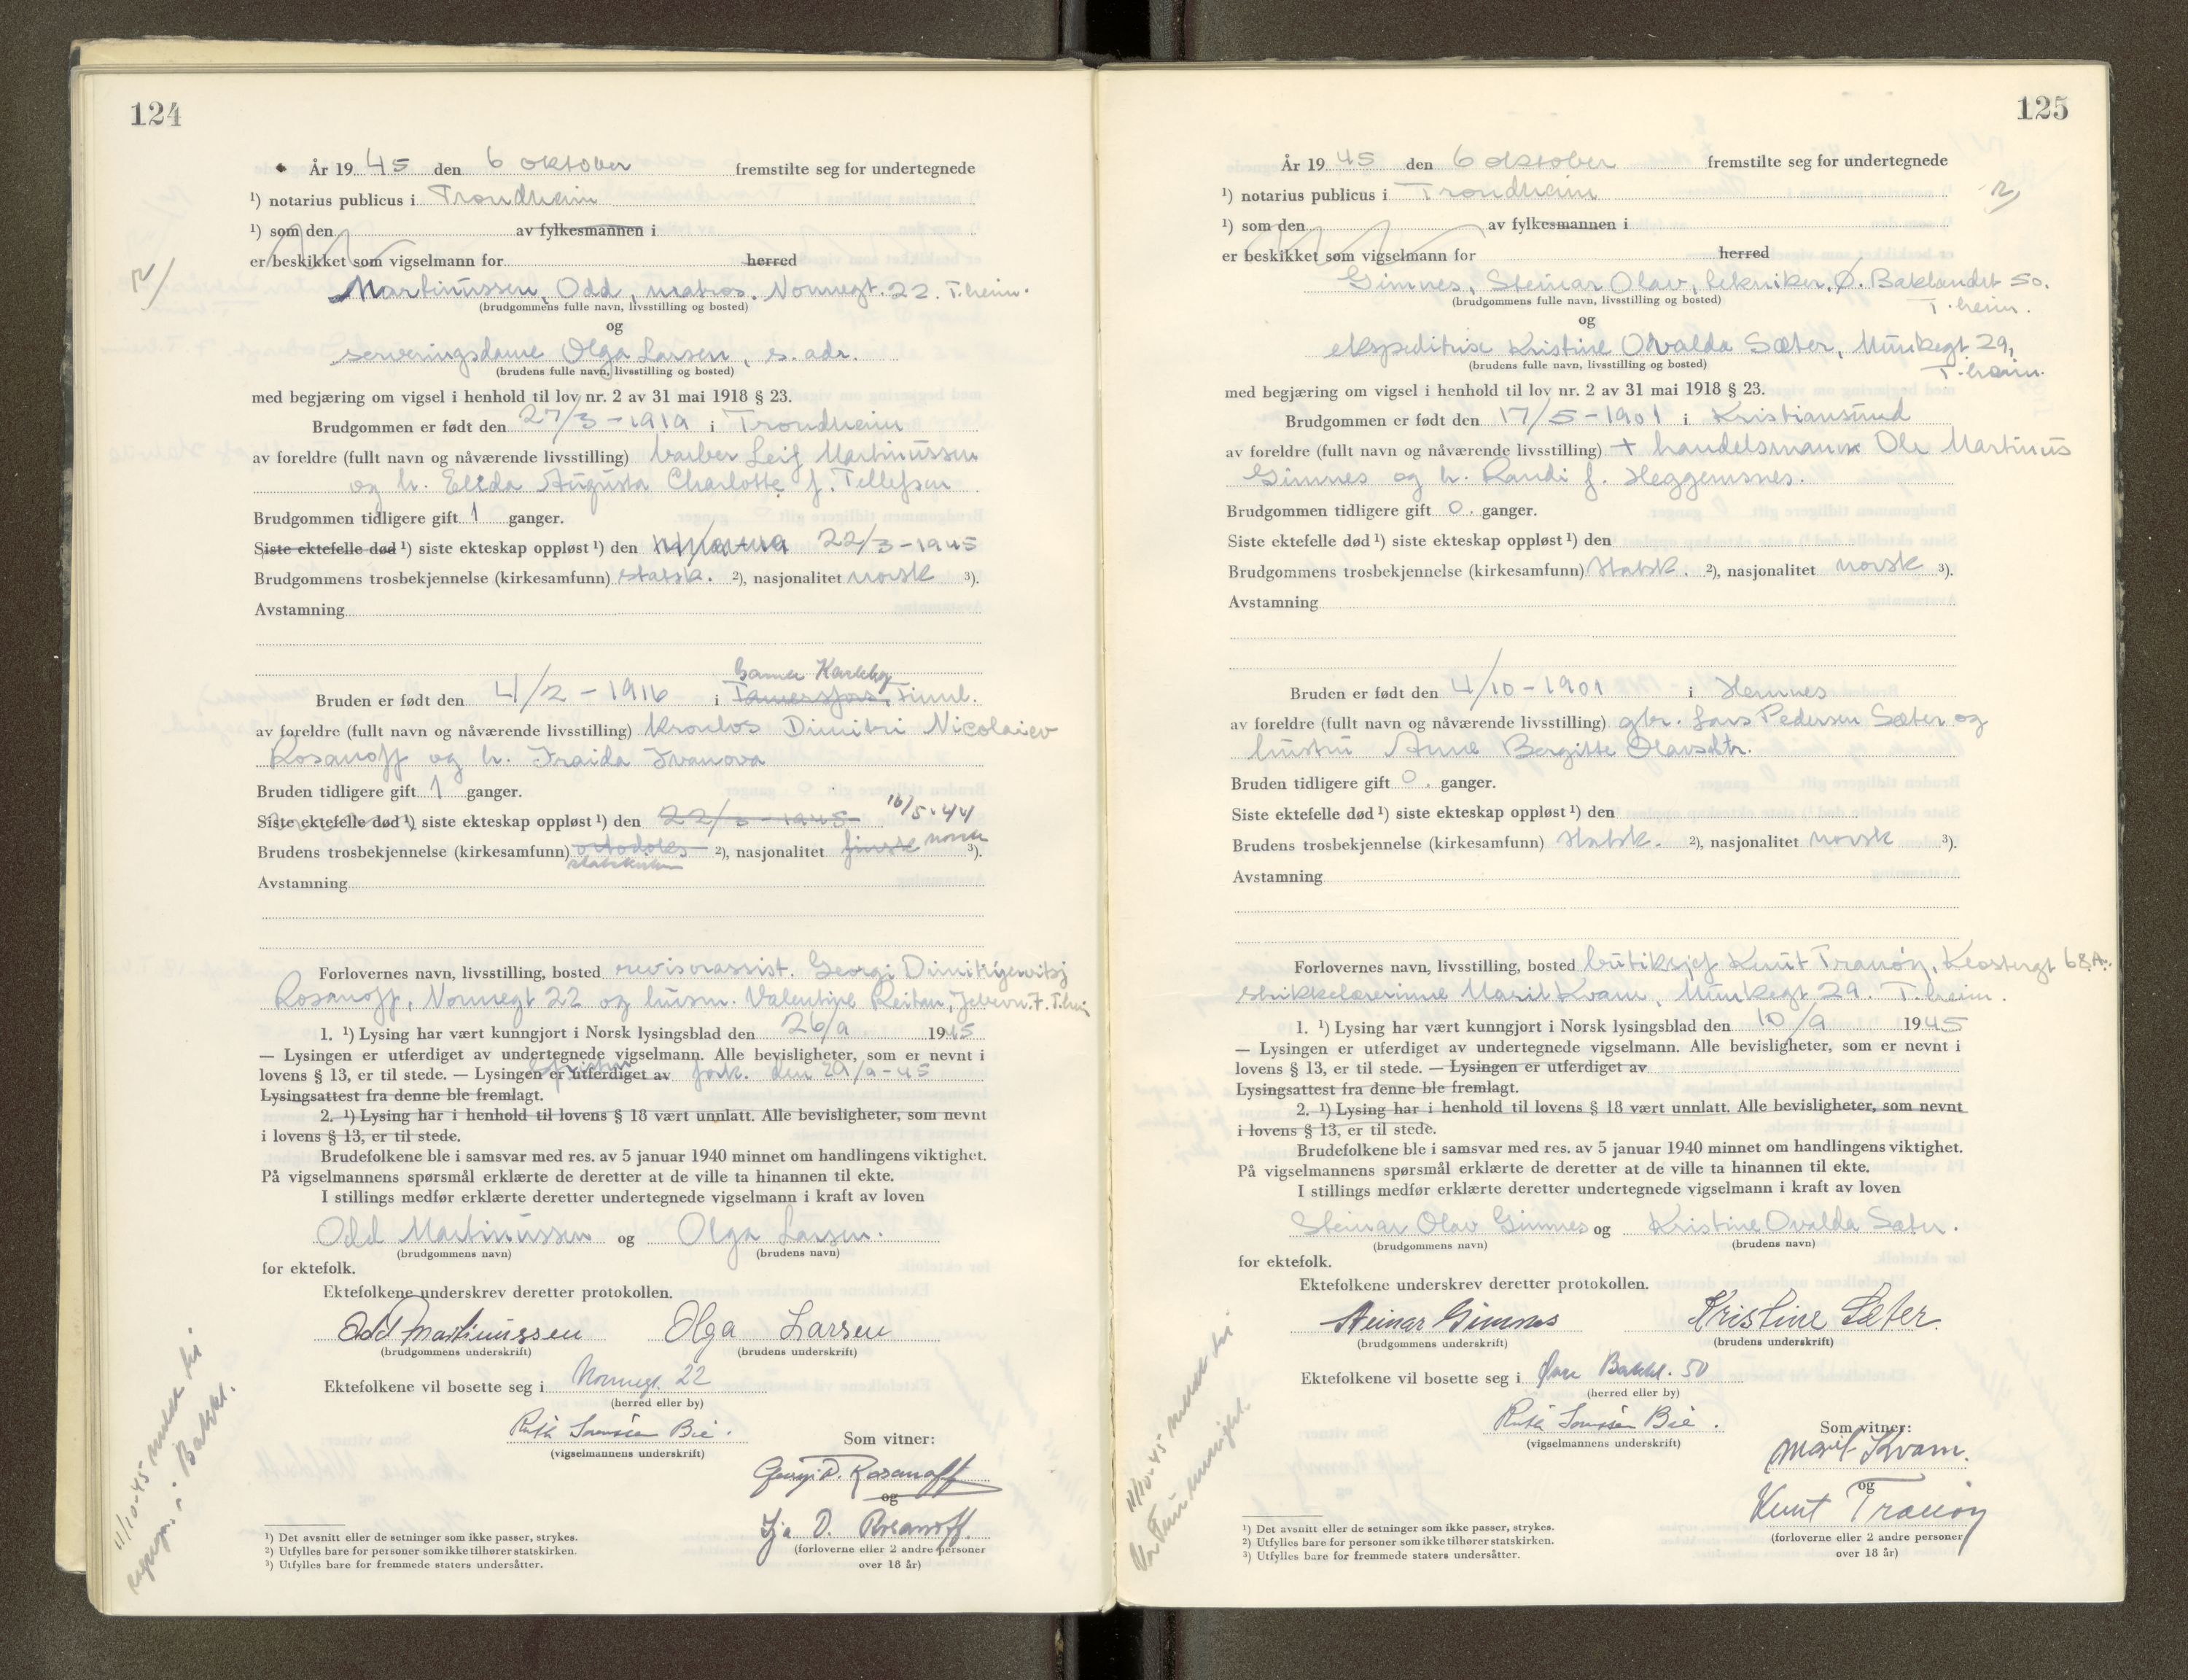 124
År 19 45 den 6 oktober fremstilte seg for undertegnede
¹) notarius publicus i Trondheim
¹) som den av fylkesmannen i
er beskikket som vigselmann for herred
Martinussen, Odd, matros, Nonnegt. 22. T.heim.
(brudgommens fulle navn, livsstilling og bosted)
og
serveringsdame Olga Larsen, s. adr.
(brudens fulle navn, livsstilling og bosted)
med begjæring om vigsel i henhold til lov nr. 2 av 31 mai 1918 § 23.
Brudgommen er født den 27/3-1919 i Trondheim
av foreldre (fullt navn og nåværende livsstilling) barber Leif Martinussen
og h. Elida Augusta Charlotte f. Tellefsen
Brudgommen tidligere gift 1 ganger.
Siste ektefelle død ¹) siste ekteskap oppløst ¹) den 22/3-1945
Brudgommens trosbekjennelse (kirkesamfunn) statsk. ²), nasjonalitet norsk ³).
Avstamning
Gamle Karleby
Bruden er født den 4/2-1916 i Tammersfors, Finnl.
av foreldre (fullt navn og nåværende livsstilling) Dimitri Nicolaiev
Rosanoff og h. Iraida Ivanova
Bruden tidligere gift 1 ganger.
Siste ektefelle død ¹) siste ekteskap oppløst ¹) den 22/3-1945 16/5-44
Brudens trosbekjennelse (kirkesamfunn) ortodoks ²), nasjonalitet finsk norsk ³).
statskirken
Avstamning
Forlovernes navn, livsstilling, bosted revisorassist. Georgi Dimitrijevitsj
Rosanoff, Nonnegt 22 og husm. Valentine Reitan, 7. T.heim
1. ¹) Lysing har vært kunngjort i Norsk lysingsblad den 26/9 1945
— Lysingen er utferdiget av undertegnede vigselmann. Alle bevisligheter, som er nevnt i
lovens § 13, er til stede. — Lysingen er utferdiget av fristen fork. den 29/9-45
Lysingsattest fra denne ble fremlagt.
2. ¹) Lysing har i henhold til lovens § 18 vært unnlatt. Alle bevisligheter, som nevnt
i lovens § 13, er til stede.
Brudefolkene ble i samsvar med res. av 5 januar 1940 minnet om handlingens viktighet.
På vigselmannens spørsmål erklærte de deretter at de ville ta hinannen til ekte.
I stillings medfør erklærte deretter undertegnede vigselmann i kraft av loven
Odd Martinussen og Olga Larsen.
(brudgommens navn) (brudens navn)
for ektefolk.
Ektefolkene underskrev deretter protokollen.
Odd Martinussen Olga Larsen
(brudgommens underskrift) (brudens underskrift)
Ektefolkene vil bosette seg i Nonnegt. 22
(herred eller by)
Ruth Bie.
(vigselmannens underskrift)
Som vitner:
Georgi D. Rosanoff
og
D. Rosanoff.
(forloverne eller 2 andre personer
over 18 år)
11/10-45 meldt til
i Bakkl.
¹) Det avsnitt eller de setninger som ikke passer, strykes.
²) Utfylles bare for personer som ikke tilhører statskirken.
³) Utfylles bare for fremmede staters undersåtter.
125
År 19 45 den 6 oktober fremstilte seg for undertegnede
¹) notarius publicus i Trondheim
¹) som den av fylkesmannen i
er beskikket som vigselmann for herred
Gimnes, Steinar Olav, tekniker, Ø. Baklandet 50.
T.heim.
(brudgommens fulle navn, livsstilling og bosted)
og
ekspeditrise Kristine Ovalda Sæter, Munkegt 29,
T.heim.
(brudens fulle navn, livsstilling og bosted)
med begjæring om vigsel i henhold til lov nr. 2 av 31 mai 1918 § 23.
Brudgommen er født den 17/5-1901 i Kristiansund
av foreldre (fullt navn og nåværende livsstilling) + handelsmann Ole Martinus
Gimnes og h. Randi f. Heggemsnes.
Brudgommen tidligere gift 0. ganger.
Siste ektefelle død ¹) siste ekteskap oppløst ¹) den
Brudgommens trosbekjennelse (kirkesamfunn) Statsk. ²), nasjonalitet norsk ³).
Avstamning
Bruden er født den 4/10-1901 i Hemnes
av foreldre (fullt navn og nåværende livsstilling) gbr. Lars Pedersen Sæter og
hustru Anne Bergitte Olavsdtr.
Bruden tidligere gift 0. ganger.
Siste ektefelle død ¹) siste ekteskap oppløst ¹) den
Brudens trosbekjennelse (kirkesamfunn) Statsk. ²), nasjonalitet norsk ³).
Avstamning
Forlovernes navn, livsstilling, bosted butiksjef Knut Tranøy, Klostergt 68A.
strikkelærerinne Marit Kvam, Munkegt 29. T.heim.
1. ¹) Lysing har vært kunngjort i Norsk lysingsblad den 10/9 1945
— Lysingen er utferdiget av undertegnede vigselmann. Alle bevisligheter, som er nevnt i
lovens § 13, er til stede. — Lysingen er utferdiget av
Lysingsattest fra denne ble fremlagt.
2. ¹) Lysing har i henhold til lovens § 18 vært unnlatt. Alle bevisligheter, som nevnt
i lovens § 13, er til stede.
Brudefolkene ble i samsvar med res. av 5 januar 1940 minnet om handlingens viktighet.
På vigselmannens spørsmål erklærte de deretter at de ville ta hinannen til ekte.
I stillings medfør erklærte deretter undertegnede vigselmann i kraft av loven
Steinar Olav Gimnes og Kristine Ovalda Sæter.
(brudgommens navn) (brudens navn)
for ektefolk.
Ektefolkene underskrev deretter protokollen.
Steinar Gimnes Kristine Sæter.
(brudgommens underskrift) (brudens underskrift)
Ektefolkene vil bosette seg i Øvre Bakkl. 50
(herred eller by)
Ruth Bie.
(vigselmannens underskrift)
Som vitner:
Marit Kvam.
og
Knut Tranøy
(forloverne eller 2 andre personer
over 18 år)
11/10-45 meldt til
Vår Frue
¹) Det avsnitt eller de setninger som ikke passer, strykes.
²) Utfylles bare for personer som ikke tilhører statskirken.
³) Utfylles bare for fremmede staters undersåtter.